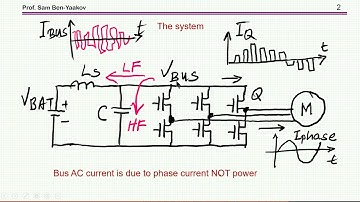 Prof. Sam Ben-Yaakov
2
The system
I BUS
t
I Q
t
LS
LF
V BUS
V BAT
+
-
C
HF
Q
M
I phase
t
Bus AC current is due to phase current NOT power